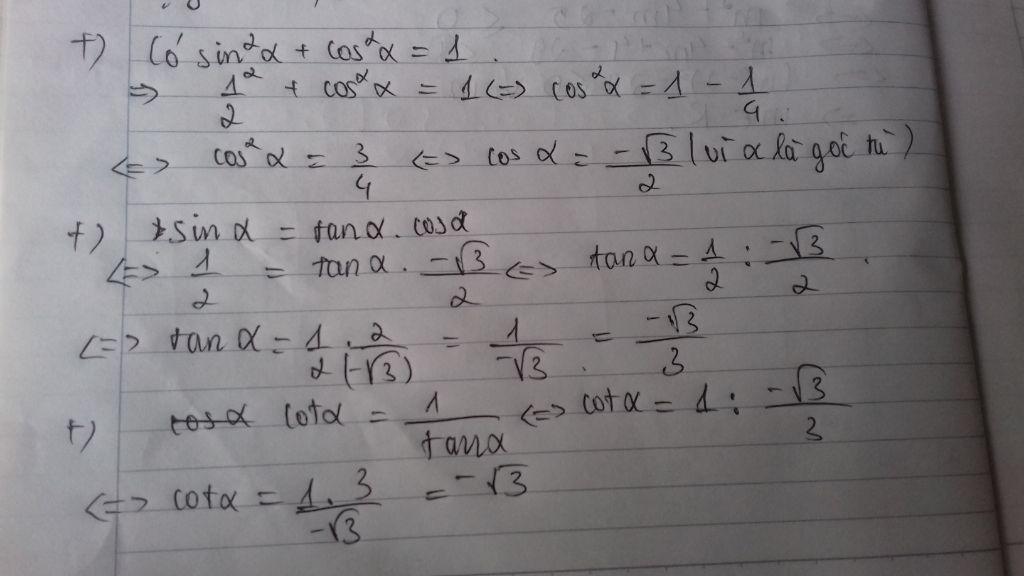 +) Có sin²α + cos²α = 1.
=> 1²/2 + cos²α = 1 <=> cos²α = 1 - 1/4.
<=> cos²α = 3/4 <=> cos α = -√3/2 (vì α là góc tù)
+) sin α = tanα. cosα
<=> 1/2 = tan α. -√3/2 <=> tan α = 1/2 : -√3/2.
<=> tan α = 1/2 . 2/(-√3) = 1/-√3. = -√3/3
+) cosα cotα = 1/tanα <=> cotα = 1 : -√3/3
<=> cotα = 1. 3/-√3 = -√3